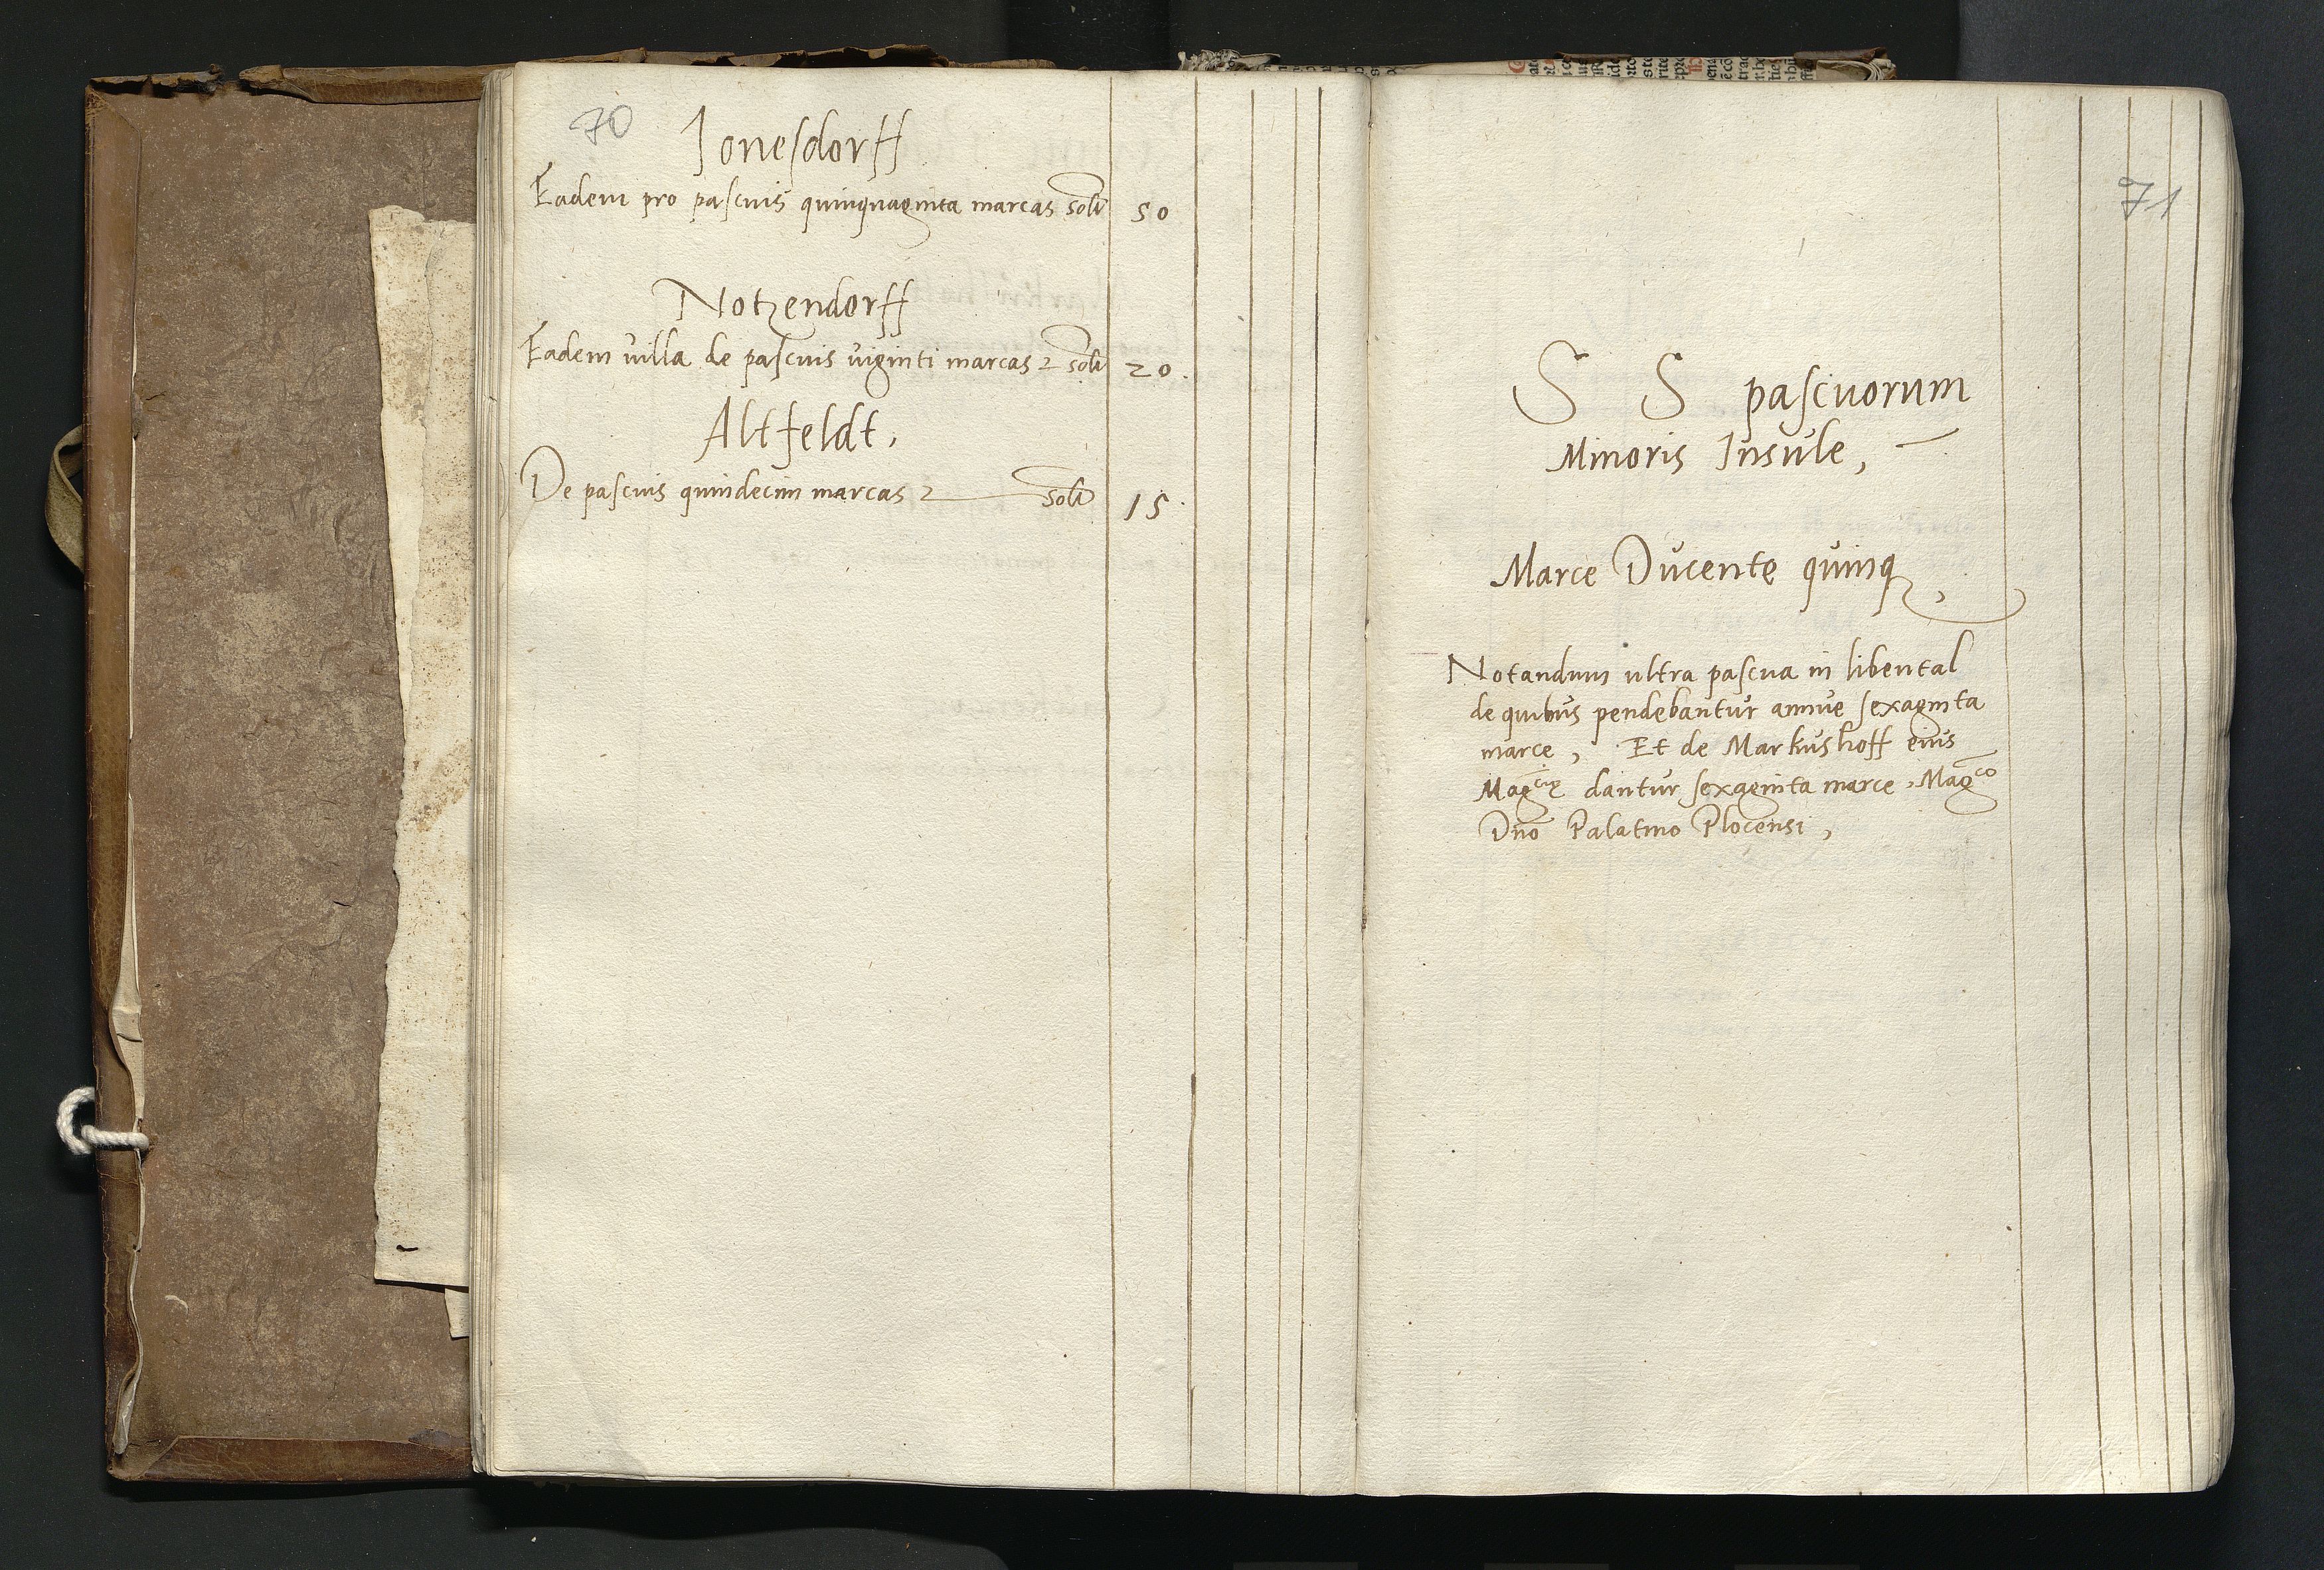 70
Jonesdorff
Eadem pro pascuis quinquaginta marcas solũ 50
Notzendorff
Eadem villa de pascuis viginti marcas solũ 20.
Altfeldt,
De pascuis quindecim marcas solũ 15.
71
S S pascuorum
Minoris Insule,
Marce Ducentę quinq,
Notandum ultra pascua in libental
de quibus pendebantur annue sexaginta
marce, Et de Markushoff eius
Mag<sup>cię</sup> dantur sexaginta marce, Mag<sup>co</sup>
Dño Palatino Plocensi,